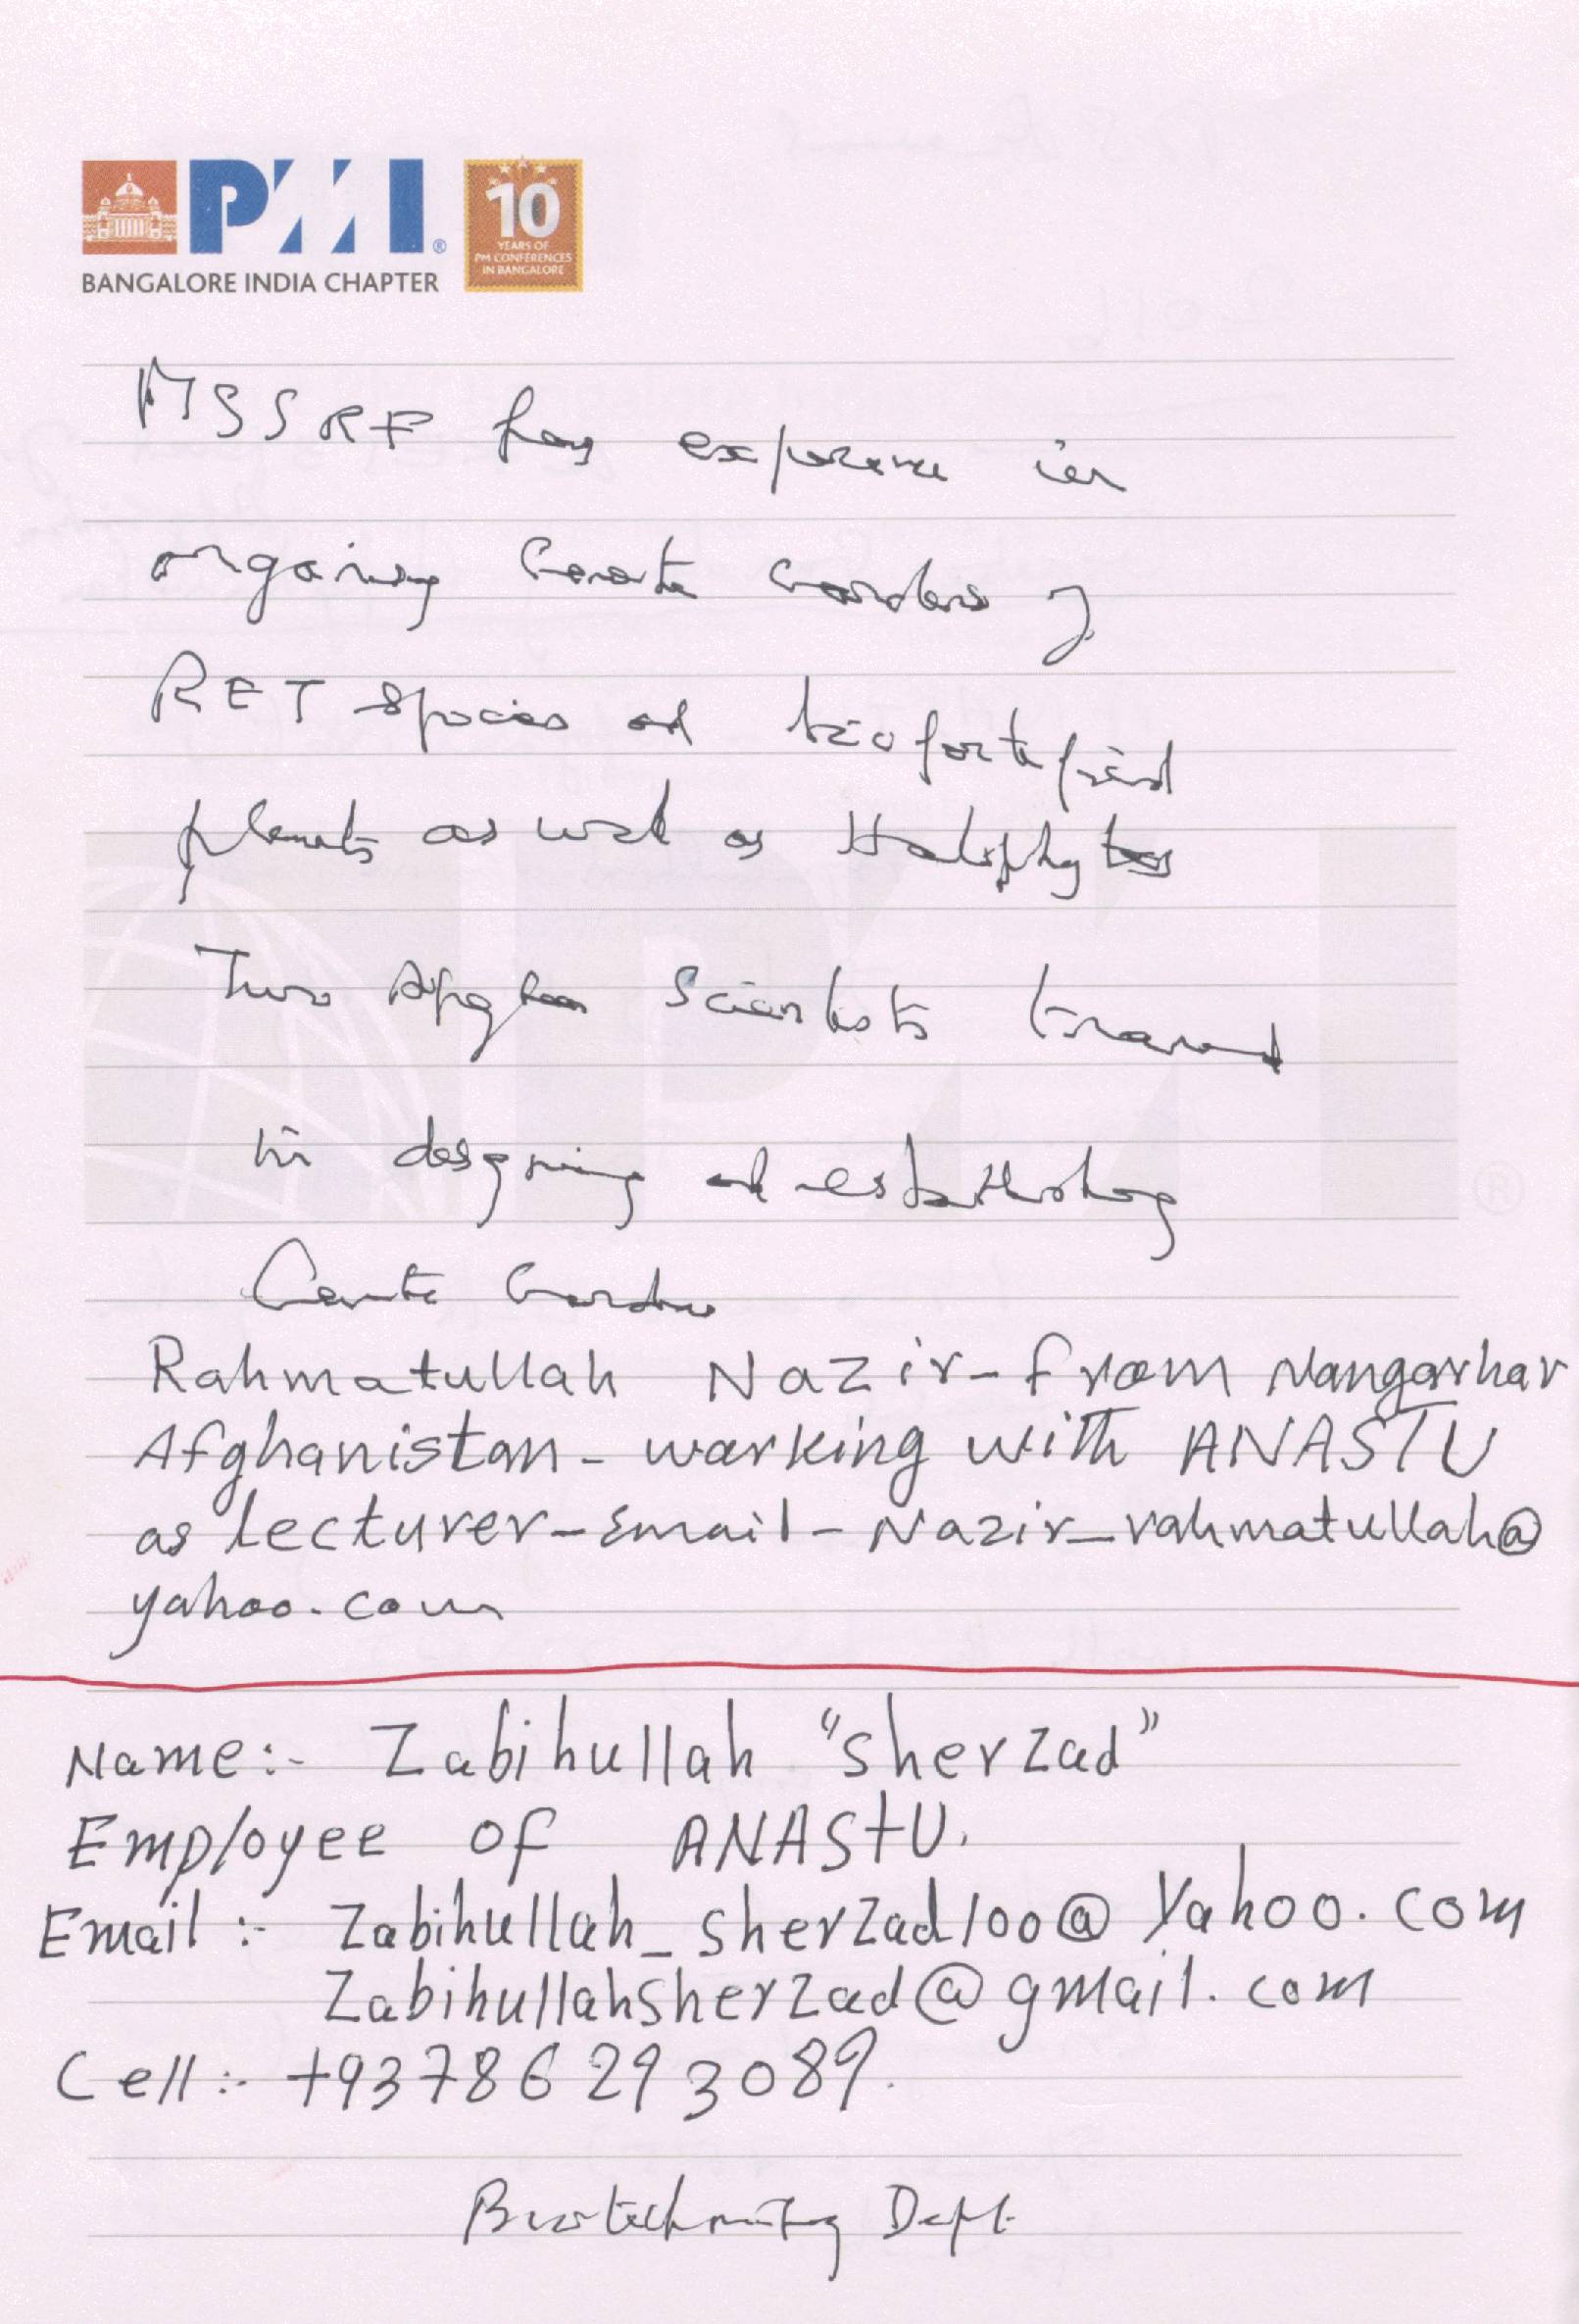 PMI®
BANGALORE INDIA CHAPTER
10
YEARS OF
PM CONFERENCES
IN BANGALORE
MSSRF has experience in
organising Genetic Gardens of
RET species and biofortified
plants as well as Halophytes
Two Afghan Scientists trained
in designing and establishing
Genetic Gardens
Rahmatullah Nazir - from Nangarhar
Afghanistan - working with ANASTU
as lecturer - Email - Nazir_rahmatullah@
yahoo.com
Name:- Zabihullah "sherzad"
Employee of ANASTU.
Email :- Zabihullah_sherzad100@Yahoo.com
Zabihullahsherzad@gmail.com
Cell :- +93786293089.
Biotechnology Dept.